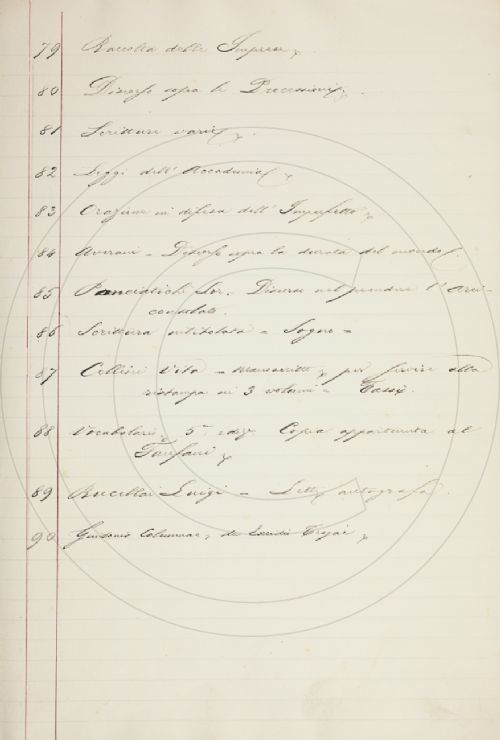 79 Raccolta delle Imprese
80 Discorso sopra le Processioni
81 Scritture varie
82 Leggi dell' Accademia
83 Orazione in difesa dell' Imperfetto
84 Averani - Discorso sopra la durata del mondo.
85 Panciatichi Lor. Discorso nel prendere l' Arci-
consolato.
86 Scrittura intitolata = Sogno =
87 Cellini Vita = manoscritto per servire alla
ristampa in 3 volumi = Tassi.
88 Vocabolario 5ª ediz. Copia appartenuta al
Fanfani
89 Rucellai Luigi = Lett. autografa.
90 Guidonis Columnae, de Excidii Trojae